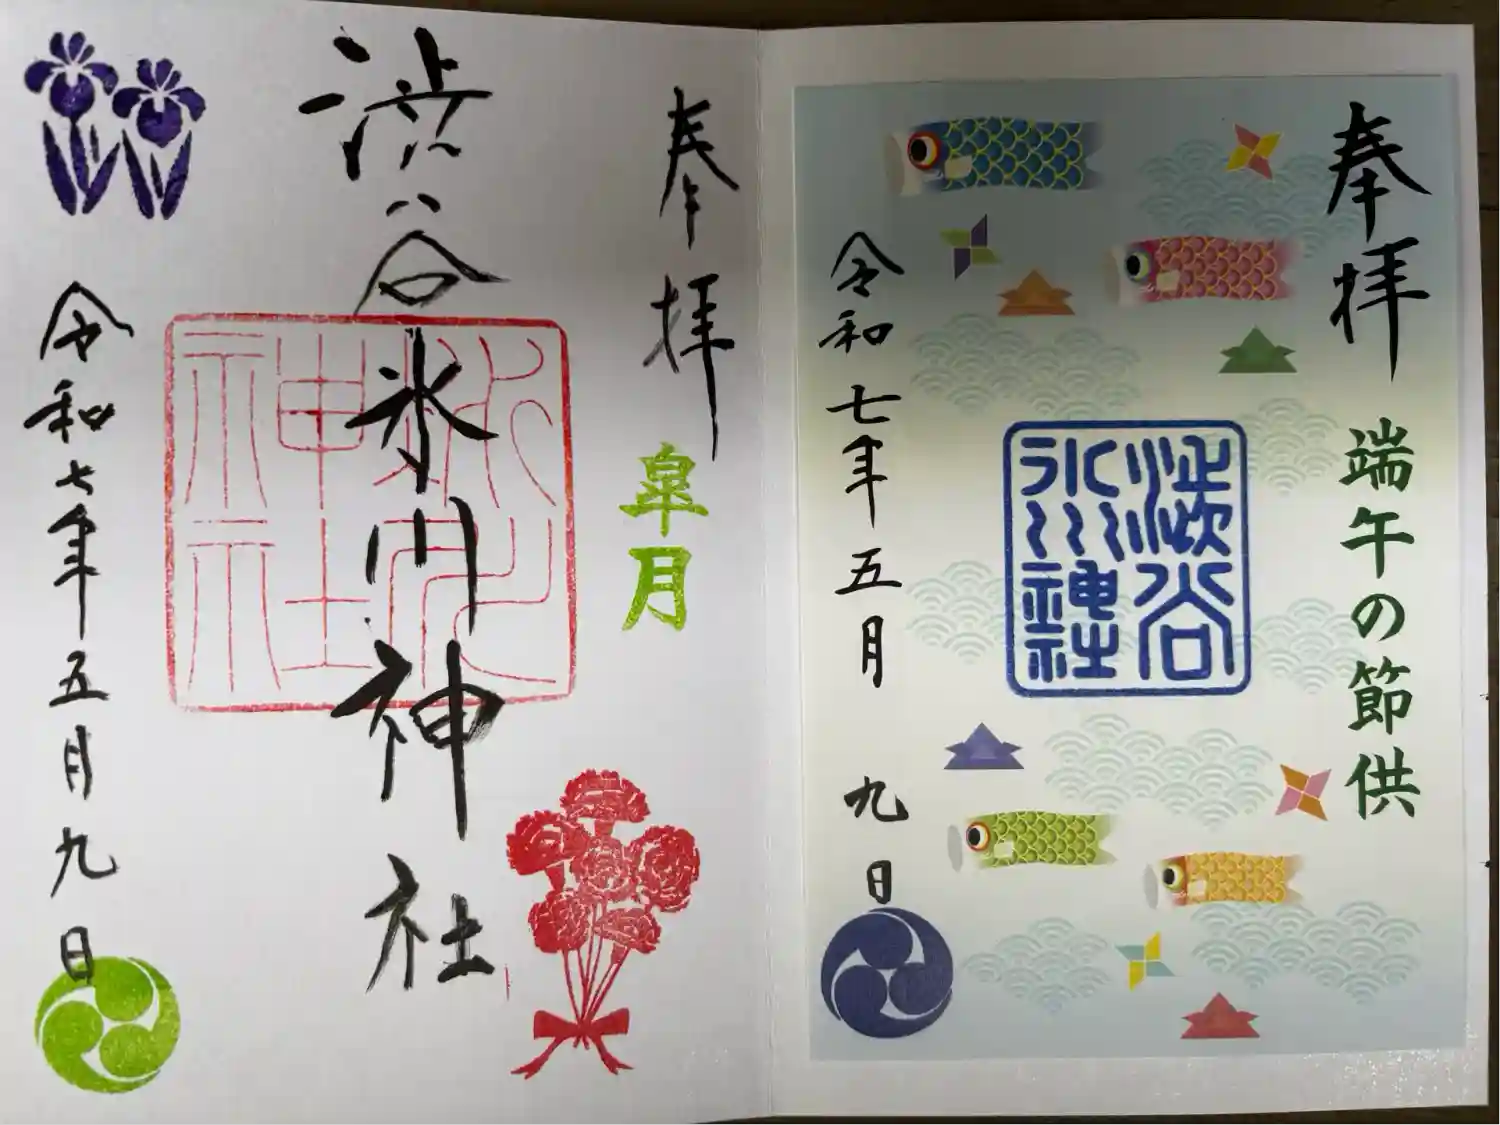 奉拝
端午の節供
渋谷
氷川
神社
令和七年五月九日
奉拝
皐月
渋谷氷川神社
氷川
神社
令和七年五月九日